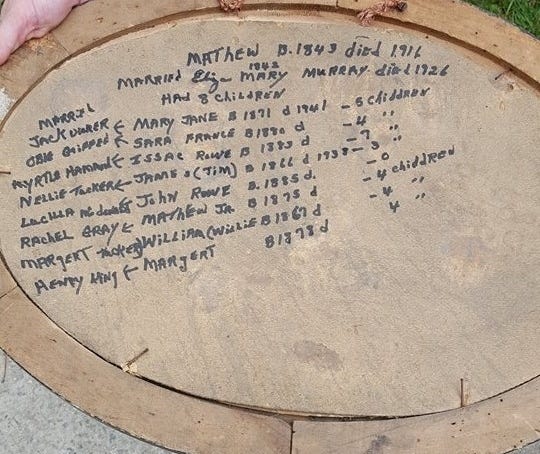 MATHEW B. 1843 died 1916
1842
MARRIED Eliz - MARY MURRAY died 1926
HAD 8 CHILDREN
MARRIED
JACK ← MARY JANE B 1871 d 1941 - 5 children
OBIE ← SARA FRANCE B 1880 d - 4 "
MYRTLE ← ISSAC ROWE B 1883 d - 7 "
NELLIE TUCKER ← JAMES (JIM) B 1866 d 1938 - 3
LUCILLA ← JOHN ROWE B. 1885 d. - 0
RACHEL GRAY ← MATHEW JR B 1875 d - 4 children
MARGERT TUCKER WILLIAM (WILLIE B 1869 d - 4 "
HENRY KING ← MARGERT B 1878 d 4 "